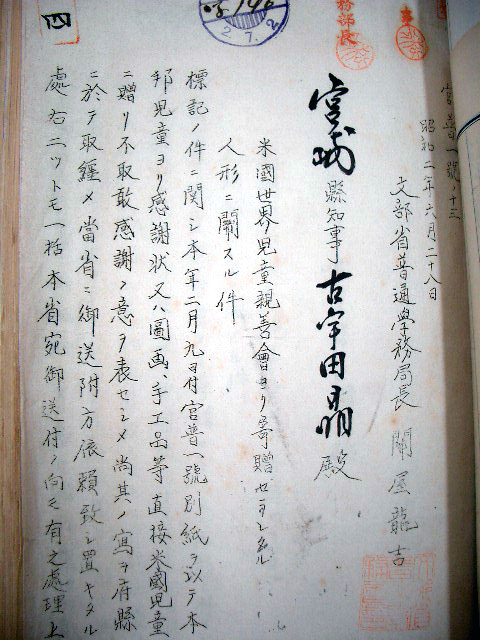 四
2.7.2
務部長
官普一號ノ十三
昭和二年六月二十八日
文部省普通學務局長 關屋龍吉
宮城縣知事 古宇田晶殿
米國世界児童親善會ヨリ寄贈セラレタル
人形ニ關スル件
標記ノ件ニ関シ本年二月九日付官普一號別紙ヲ以テ本
邦児童ヨリ感謝状又ハ圖画、手工品等直接米國児童
ニ贈リ不取敢感謝ノ意ヲ表セシメ尚其ノ寫ヲ府縣
ニ於テ取纏メ當省ニ御送附方依頼致シ置キタル
處右二ツトモ一括本省宛御送付ノ向モ有之處理上